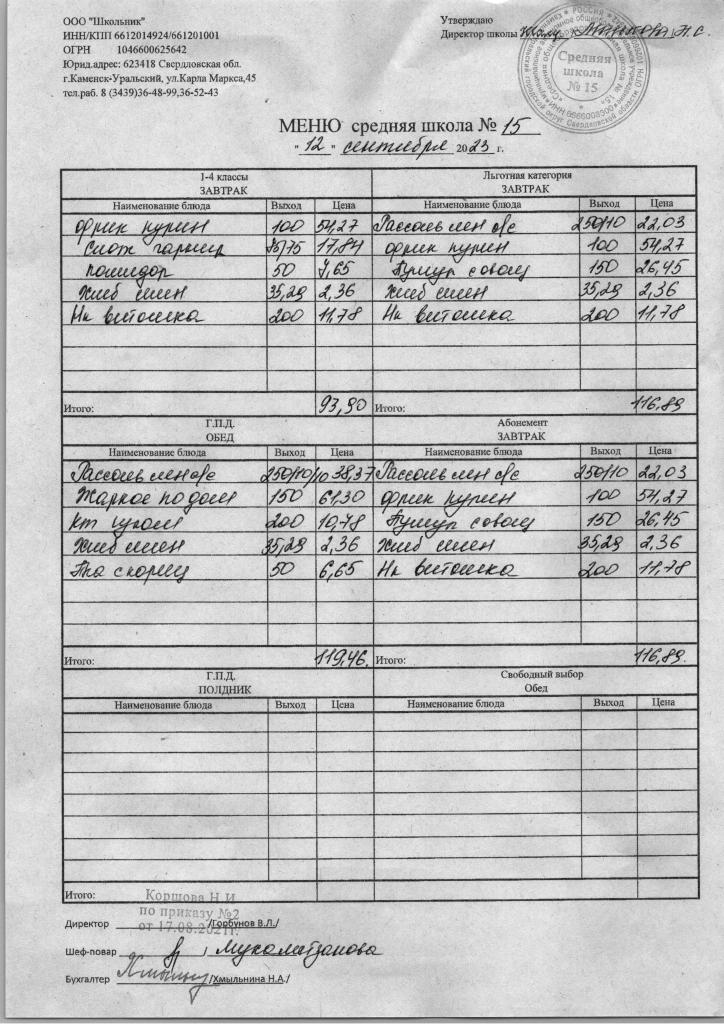 ООО "Школьник"
ИНН/КПП 6612014924/661201001
ОГРН 1046600625642
Юрид.адрес: 623418 Свердловская обл.
г.Каменск-Уральский, ул.Карла Маркса,45
тел.раб. 8 (3439)36-48-99,36-52-43
Утверждаю
Директор школы
Средняя
школа
№ 15
МЕНЮ средняя школа № 15
"12" сентября 2023 г.
1-4 классы
ЗАВТРАК
Наименование блюда Выход Цена
фрик курин 100 54,27
Слож гарнир 75/75 17,84
помидор 50 7,65
Хлеб пшен 35,29 2,36
Нк витошка 200 11,78
Итого: 93,90
Льготная категория
ЗАВТРАК
Наименование блюда Выход Цена
Рассольн лен 250/10 22,03
фрик курин 100 54,27
150 26,45
Хлеб пшен 35,29 2,36
Нк витошка 200 11,78
Итого: 116,89
Г.П.Д.
ОБЕД
Наименование блюда Выход Цена
Рассольн лен 250/10/10 38,37
Жаркое по дом 150 61,30
200 10,78
Хлеб пшен 35,29 2,36
50 6,65
Итого: 119,46.
Абонемент
ЗАВТРАК
Наименование блюда Выход Цена
Рассольн лен 250/10 22,03
фрик курин 100 54,27
150 26,45
Хлеб пшен 35,29 2,36
Нк витошка 200 11,78
Итого: 116,89.
Г.П.Д.
ПОЛДНИК
Наименование блюда Выход Цена
Итого:
Свободный выбор
Обед
Наименование блюда Выход Цена
Коршова Н И
по приказу №2
от 17.08.2021г.
Директор /Горбунов В.Л./
Шеф-повар /
Бухгалтер /Хмыльнина Н.А./